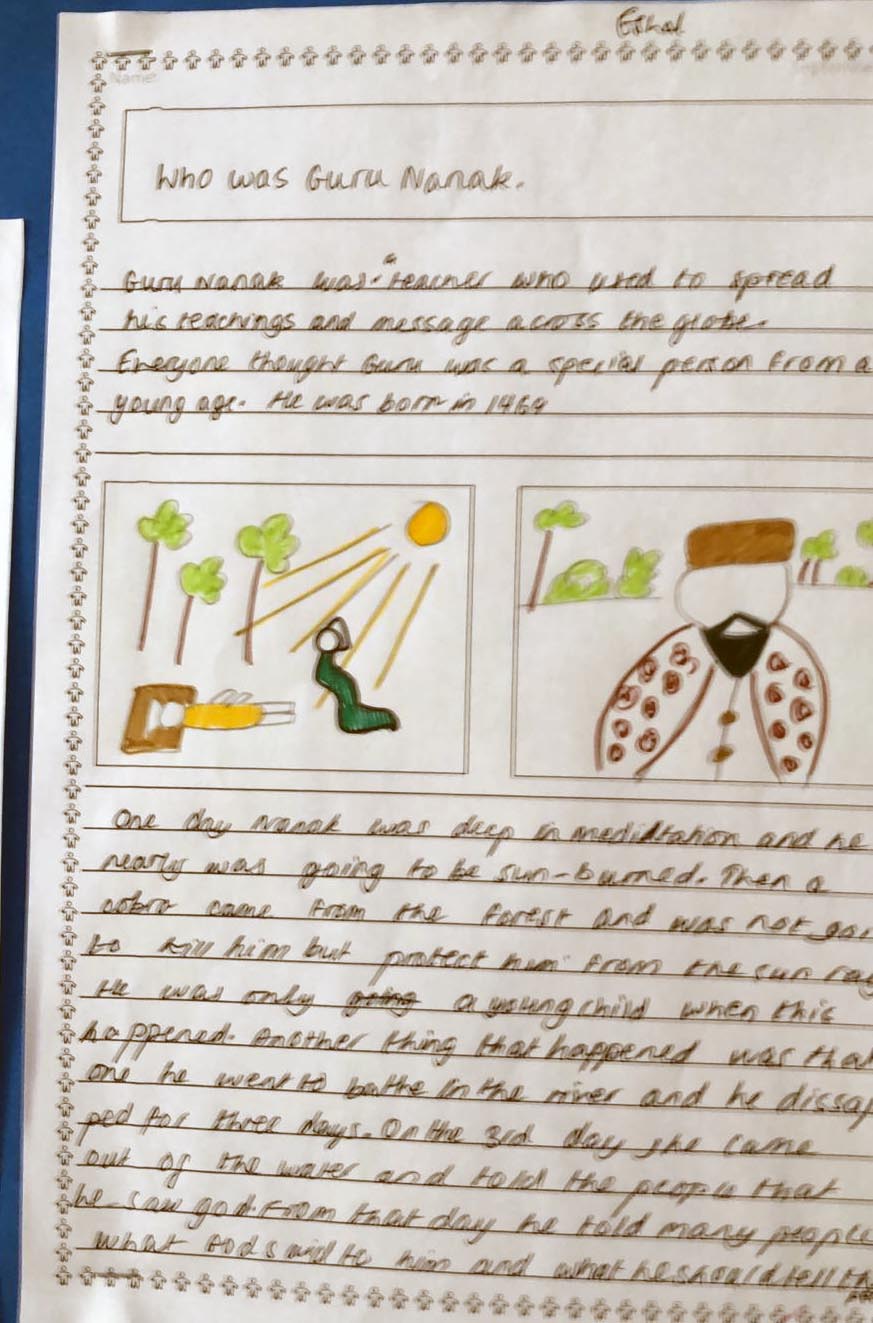 Eshal
Name:
Who was Guru Nanak.
Guru Nanak was a teacher who used to spread
his teachings and message across the globe.
Everyone thought Guru was a special person from a
young age. He was born in 1469
One day Nanak was deep in medidtation and he
nearly was going to be sun-burned. Then a
cobra came from the forest and was not goi
to kill him but protect him from the sun ray
He was only going a young child when this
happened. Another thing that happened was that
one he went to bathe in the river and he dissap
ped for three days. On the 3rd day she came
out of the water and told the people that
he saw god. From that day he told many people
what God said to him and what he should tell the